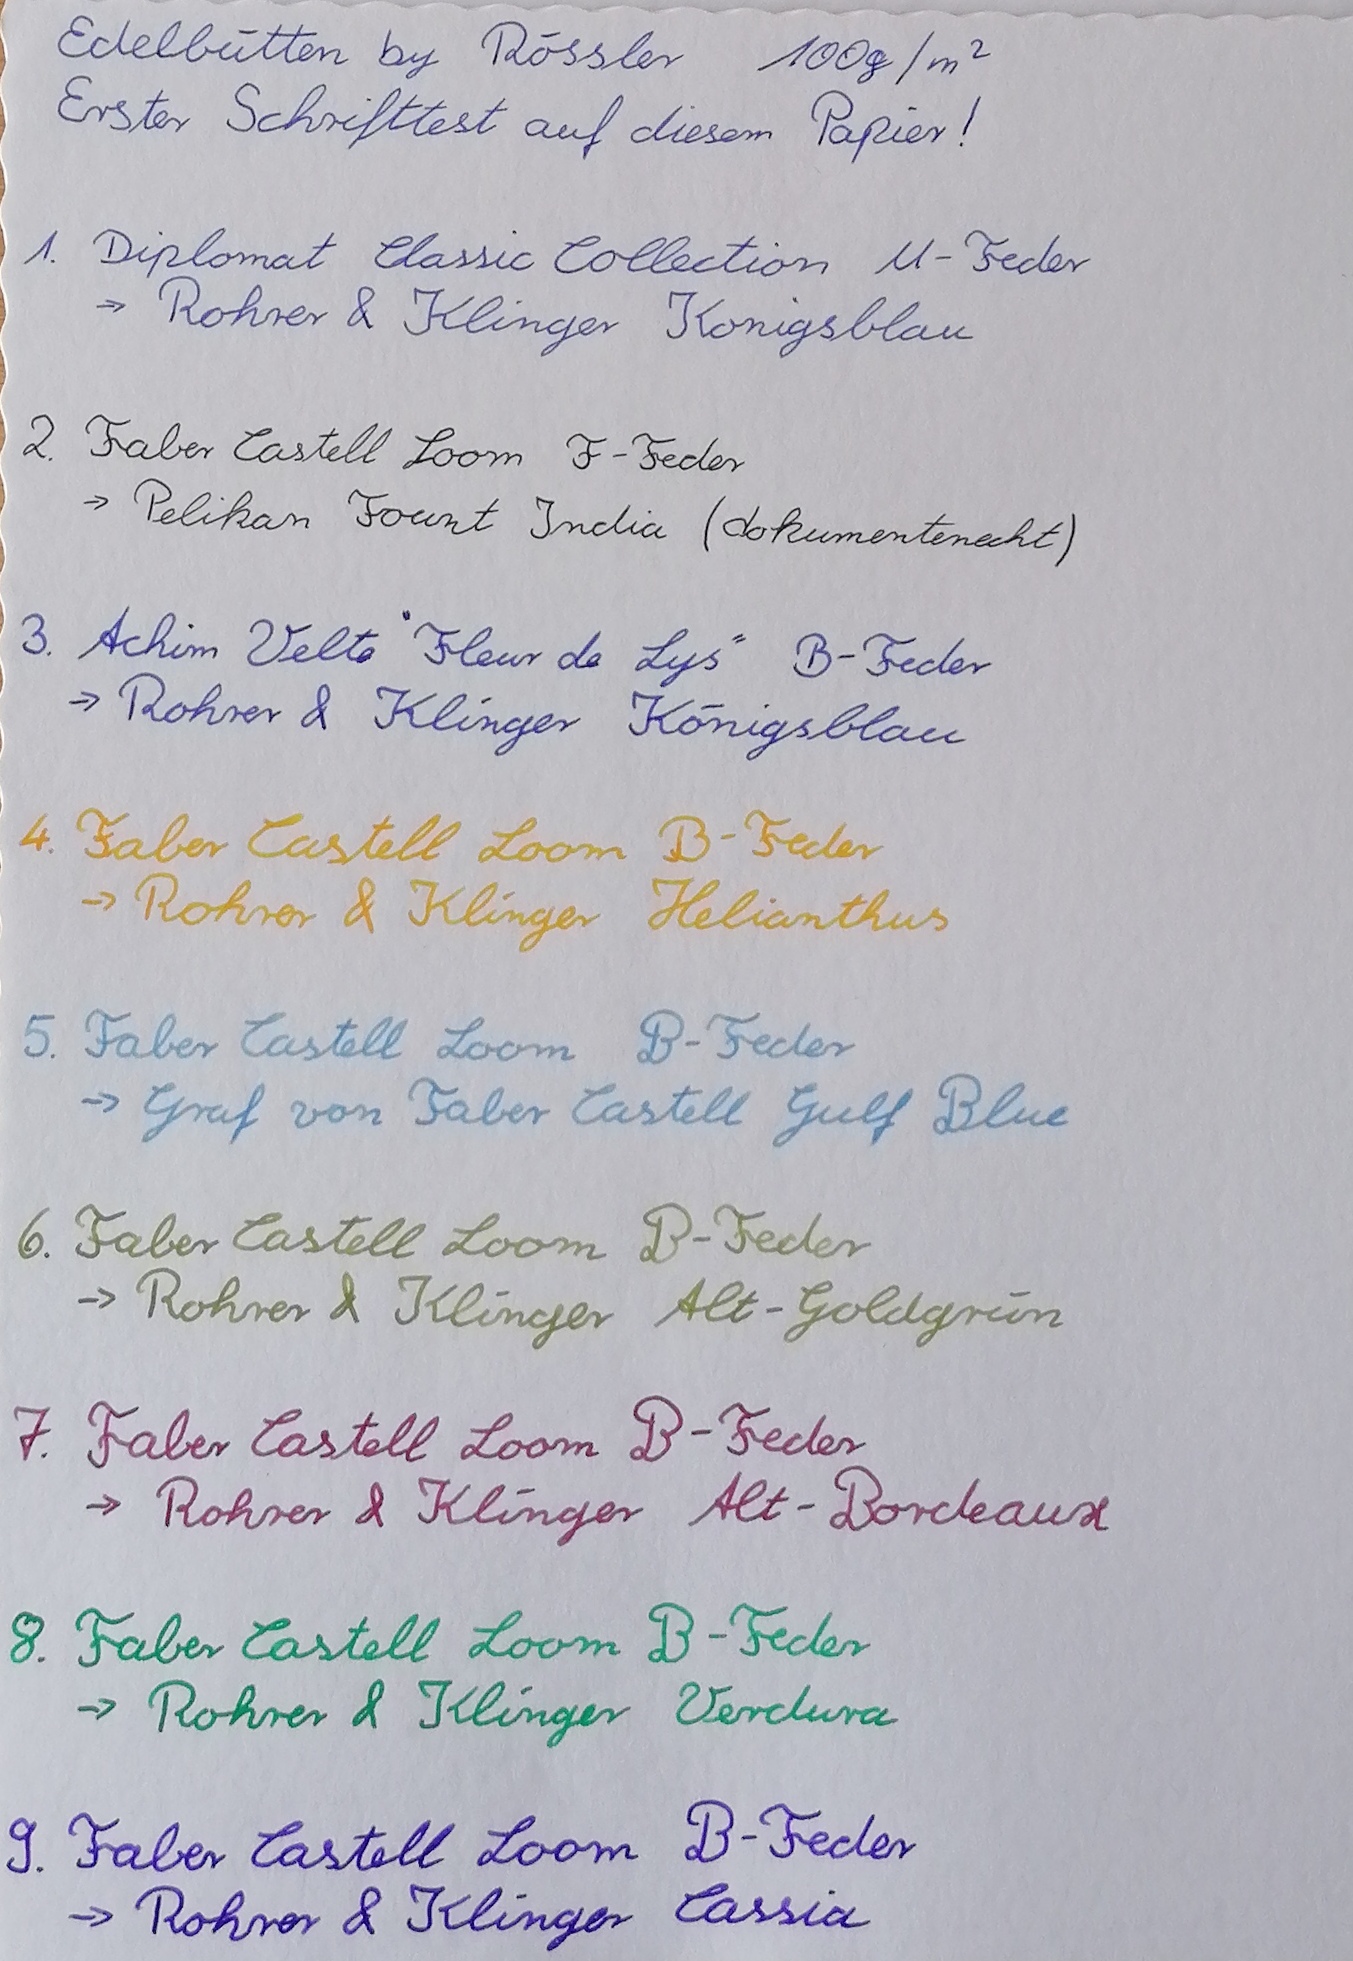 Edelbütten by Rössler 100g/m²
Erster Schrifttest auf diesem Papier!
1. Diplomat Classic Collection M-Feder
→ Rohrer & Klinger Königsblau
2. Faber Castell Loom F-Feder
→ Pelikan Fount India (dokumentenecht)
3. Achim Velte "Fleur de Lys" B-Feder
→ Rohrer & Klinger Königsblau
4. Faber Castell Loom B-Feder
→ Rohrer & Klinger Helianthus
5. Faber Castell Loom B-Feder
→ Graf von Faber Castell Gulf Blue
6. Faber Castell Loom B-Feder
→ Rohrer & Klinger Alt-Goldgrün
7. Faber Castell Loom B-Feder
→ Rohrer & Klinger Alt-Bordeaux
8. Faber Castell Loom B-Feder
→ Rohrer & Klinger Verdura
9. Faber Castell Loom B-Feder
→ Rohrer & Klinger Cassia